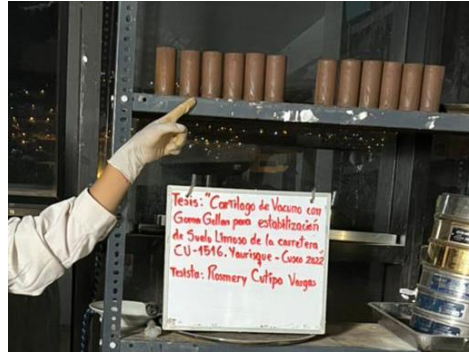 Tesis: "Cartílago de Vacuno con
Goma Gellan para estabilización
de Suelo Limoso de la carretera
CU-1516. Yaurisque - Cusco 2022
Tesista: Rosmery Cutipa Vargas